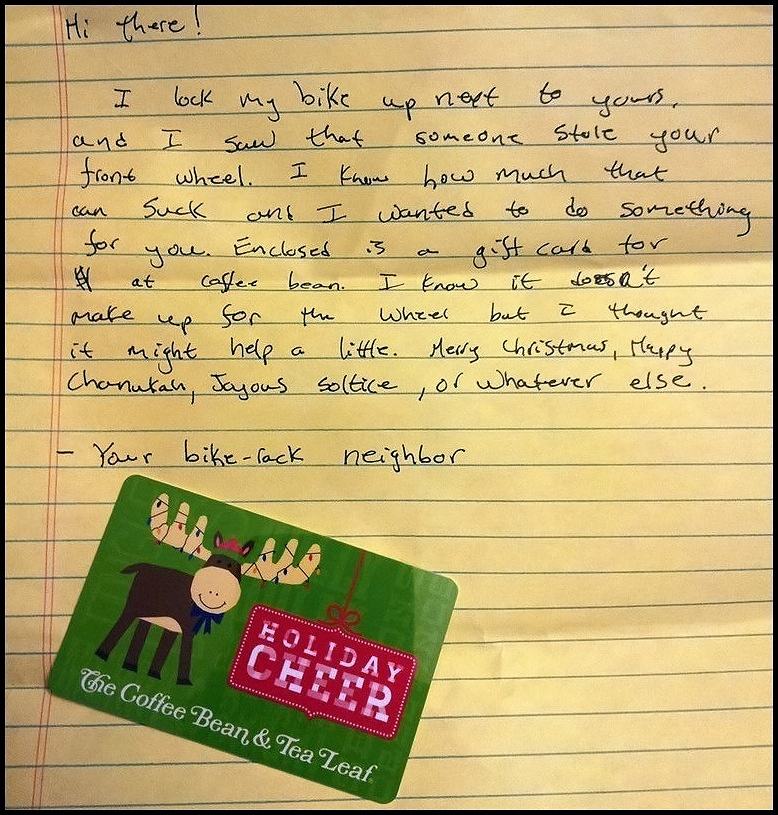 Hi there!
I lock my bike up next to yours,
and I saw that someone stole your
front wheel. I know how much that
can suck and I wanted to do something
for you. Enclosed is a gift card for
at coffee bean. I know it doesn't
make up for the wheel but I thought
it might help a little. Merry Christmas, Happy
Chanukah, Joyous soltice, or whatever else.
- Your bike-rack neighbor
HOLIDAY
CHEER
The Coffee Bean & Tea Leaf